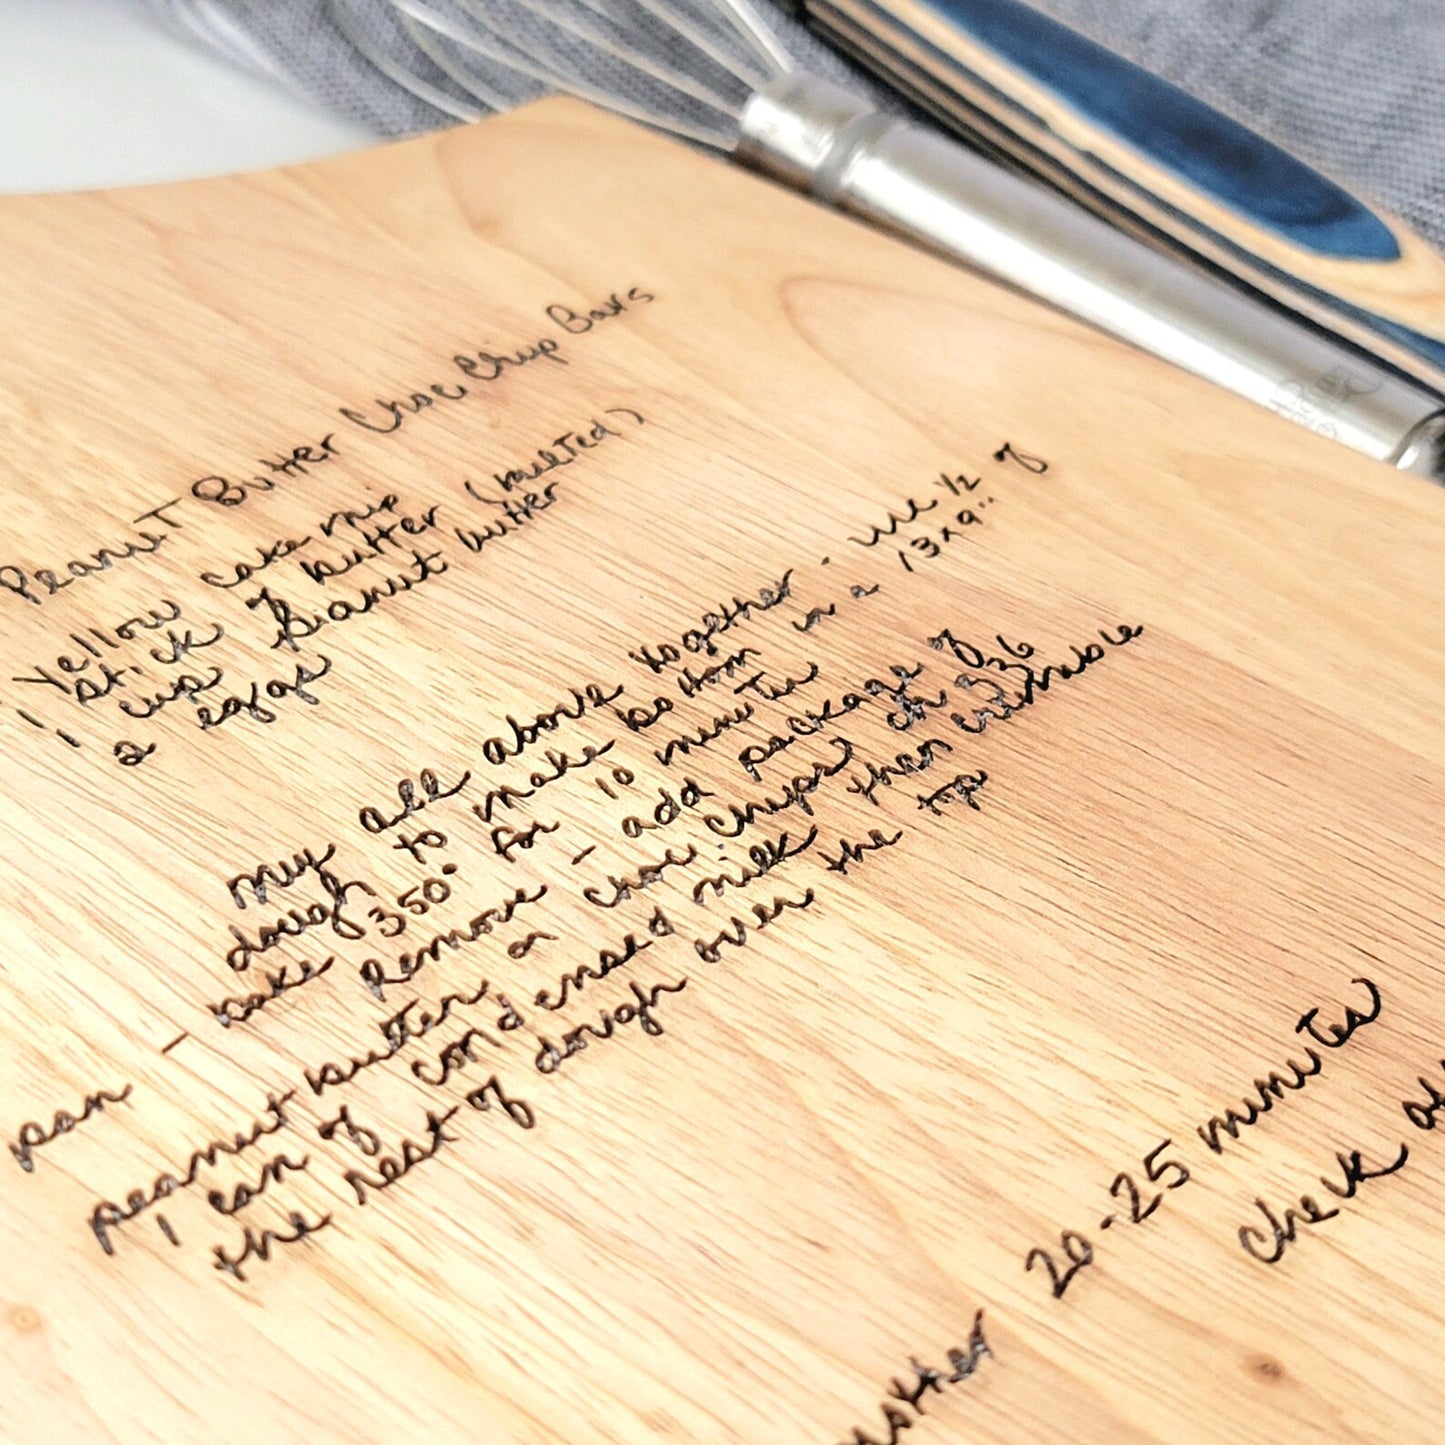 Peanut Butter Choc Chip Bars
Yellow cake mix
1 stick of butter (melted)
1 cup peanut butter
2 eggs
Mix all above together. use 1/2 of
dough to make bottom in a 13x9"
pan - bake 350° for 10 minutes
Remove - add package of
peanut butter or choc. chips
1 can of condensed milk then crumble
the rest of dough over the top
20-25 minutes
check